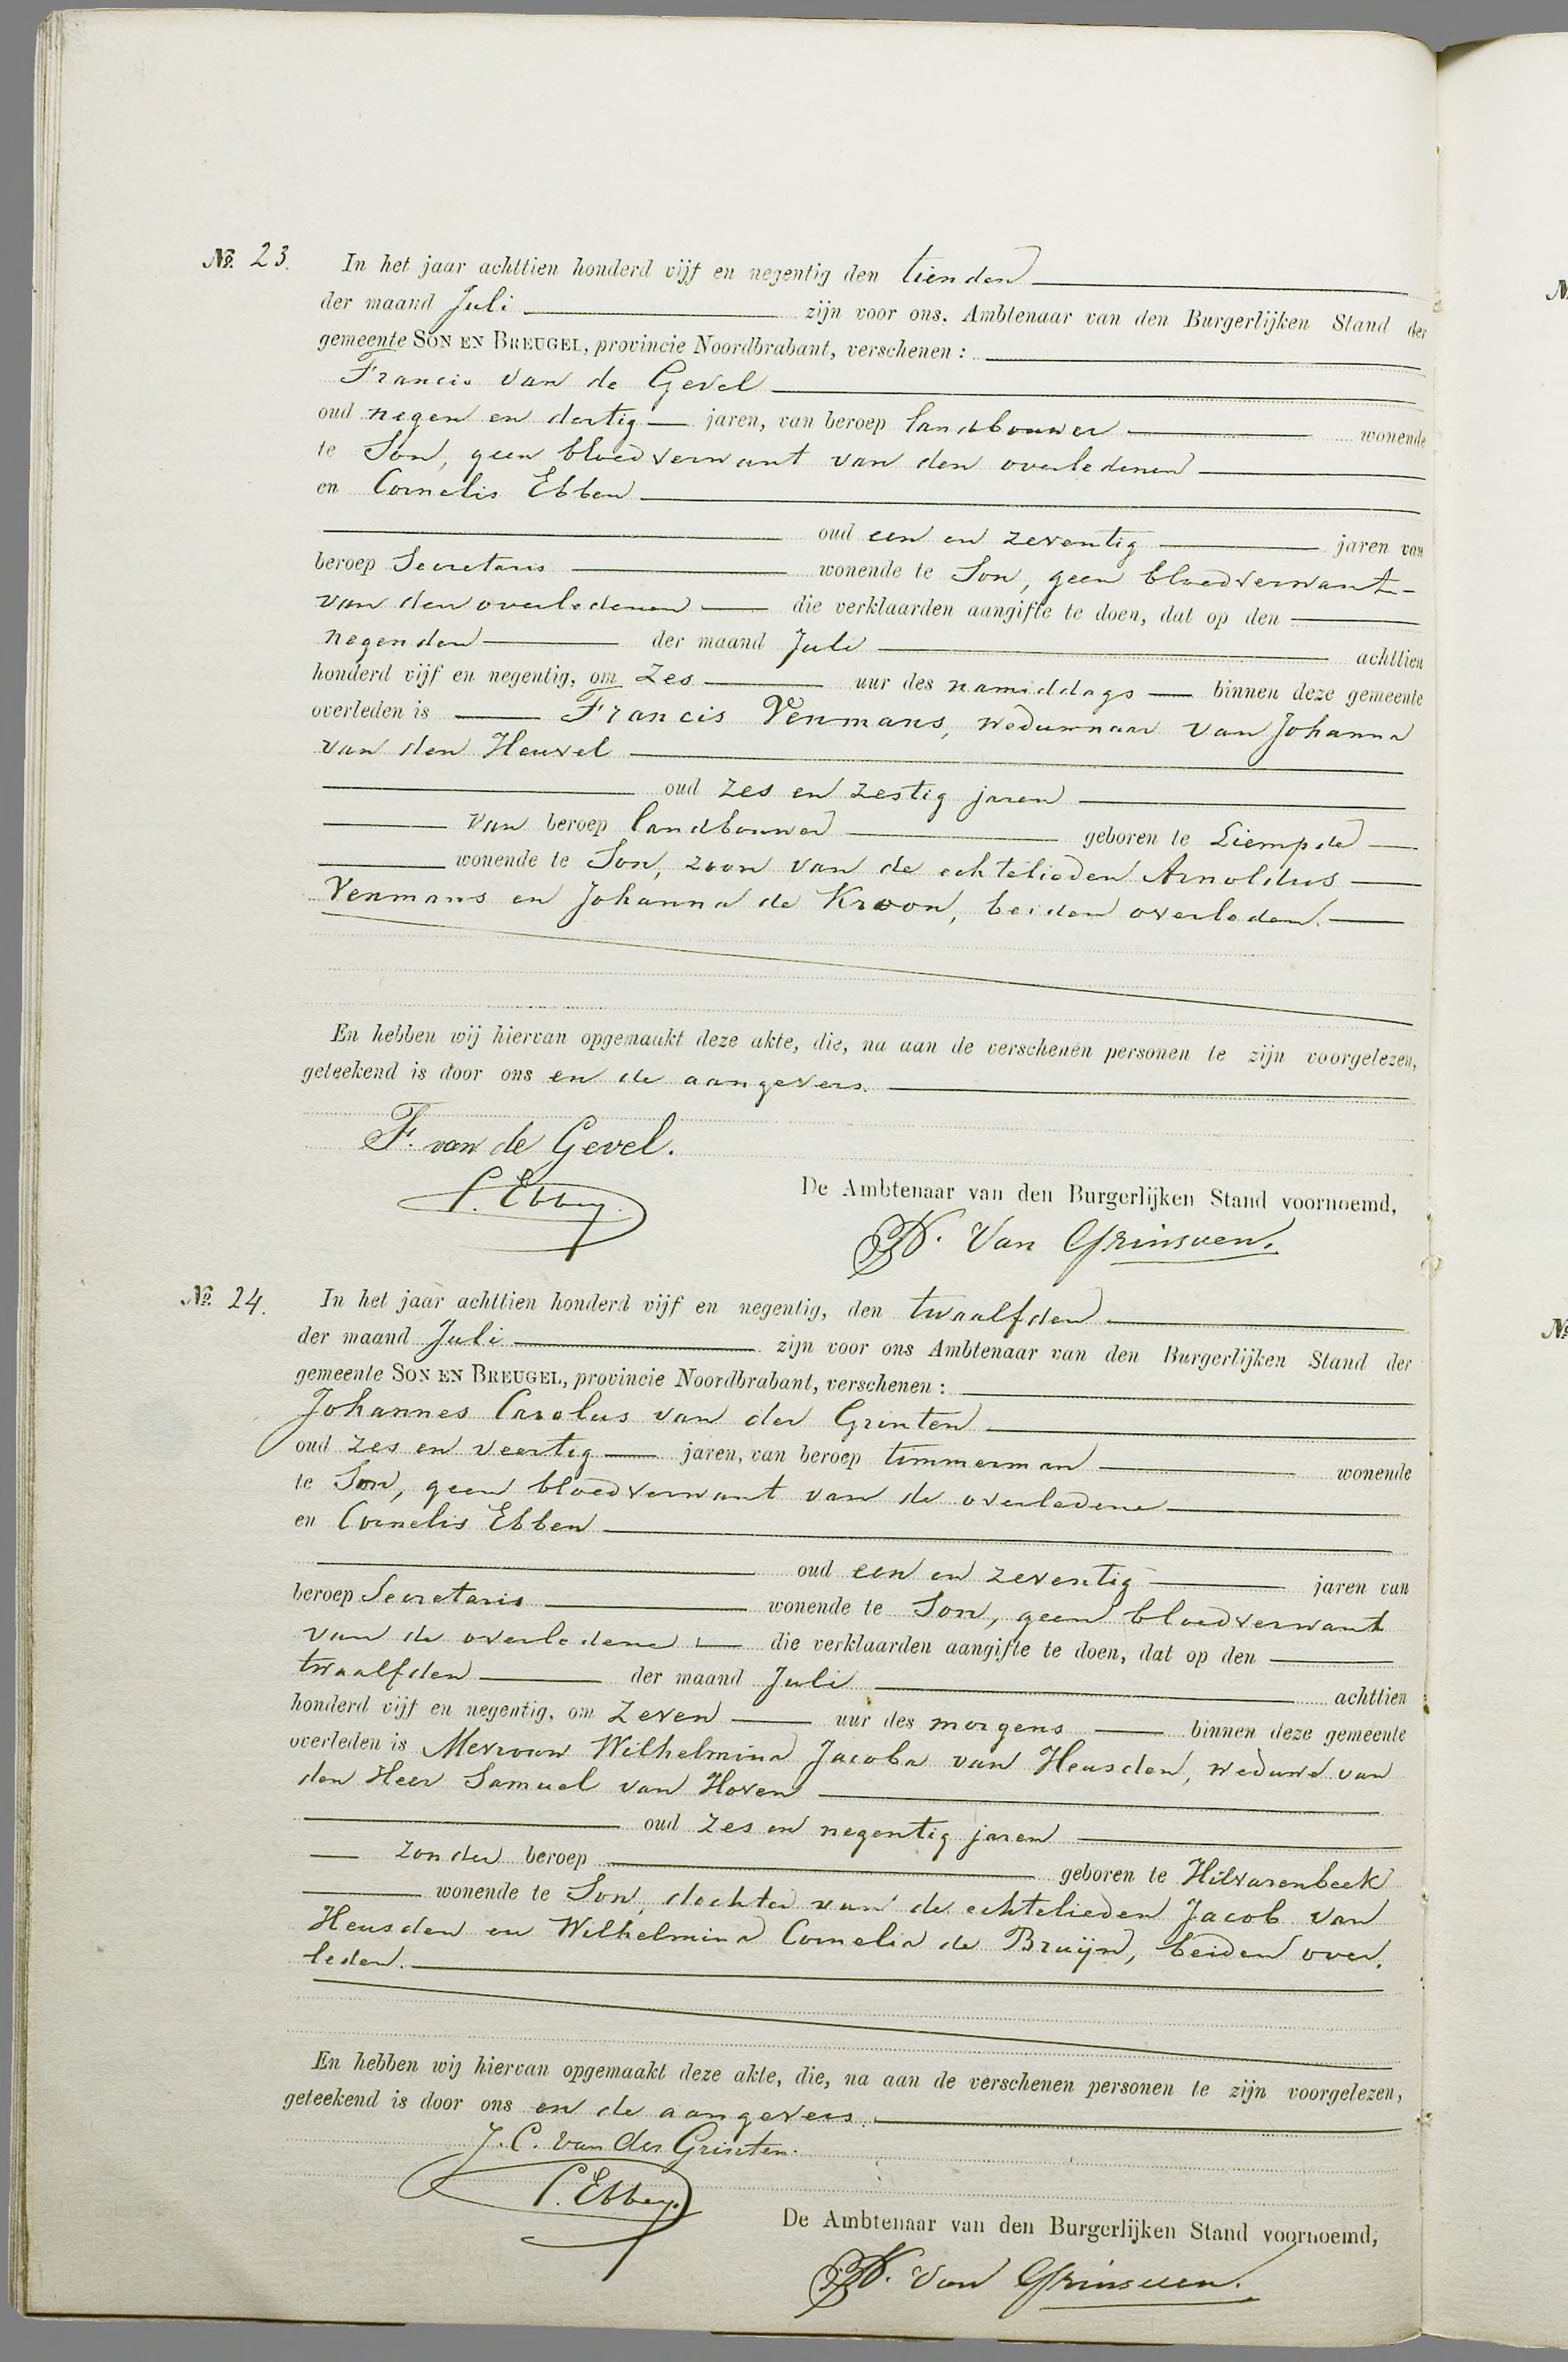 No. 23. In het jaar achttien honderd vijf en negentig den tienden
der maand Juli zijn voor ons, Ambtenaar van den Burgerlijken Stand der
gemeente SON EN BREUGEL, provincie Noordbrabant, verschenen:
Francis van de Gevel
oud negen en dertig jaren, van beroep landbouwer wonende
te Son, geen bloedverwant van den overledenen
en Cornelis Ebben
oud een en zeventig jaren van
beroep Secretaris wonende te Son, geen bloedverwant
van den overledenen die verklaarden aangifte te doen, dat op den
negenden der maand Juli achttien
honderd vijf en negentig, om zes uur des namiddags binnen deze gemeente
overleden is Francis Venmans, weduwnaar van Johanna
van den Heuvel
oud zes en zestig jaren
van beroep landbouwer geboren te Liempde
wonende te Son, zoon van de echtelieden Arnoldus
Venmans en Johanna de Kroon, beiden overleden.
En hebben wij hiervan opgemaakt deze akte, die, na aan de verschenen personen te zijn voorgelezen,
geteekend is door ons en de aangevers.
F. van de Gevel.
C. Ebben.
De Ambtenaar van den Burgerlijken Stand voornoemd,
Van Grinsven.
No. 24. In het jaar achttien honderd vijf en negentig, den twaalfden
der maand Juli zijn voor ons Ambtenaar van den Burgerlijken Stand der
gemeente SON EN BREUGEL, provincie Noordbrabant, verschenen:
Johannes Carolus van der Grinten
oud zes en veertig jaren, van beroep timmerman wonende
te Son, geen bloedverwant van de overledene
en Cornelis Ebben
oud een en zeventig jaren van
beroep Secretaris wonende te Son, geen bloedverwant
van de overledene die verklaarden aangifte te doen, dat op den
twaalfden der maand Juli achttien
honderd vijf en negentig, om zeven uur des morgens binnen deze gemeente
overleden is Mevrouw Wilhelmina Jacoba van Heusden, weduwe van
den Heer Samuel van Hoven
oud zes en negentig jaren
zonder beroep geboren te Hilvarenbeek
wonende te Son, dochter van de echtelieden Jacob van
Heusden en Wilhelmina Cornelia de Bruijn, beiden over.
leden.
En hebben wij hiervan opgemaakt deze akte, die, na aan de verschenen personen te zijn voorgelezen,
geteekend is door ons en de aangevers.
J. C. van der Grinten.
C. Ebben.
De Ambtenaar van den Burgerlijken Stand voornoemd,
Van Grinsven.